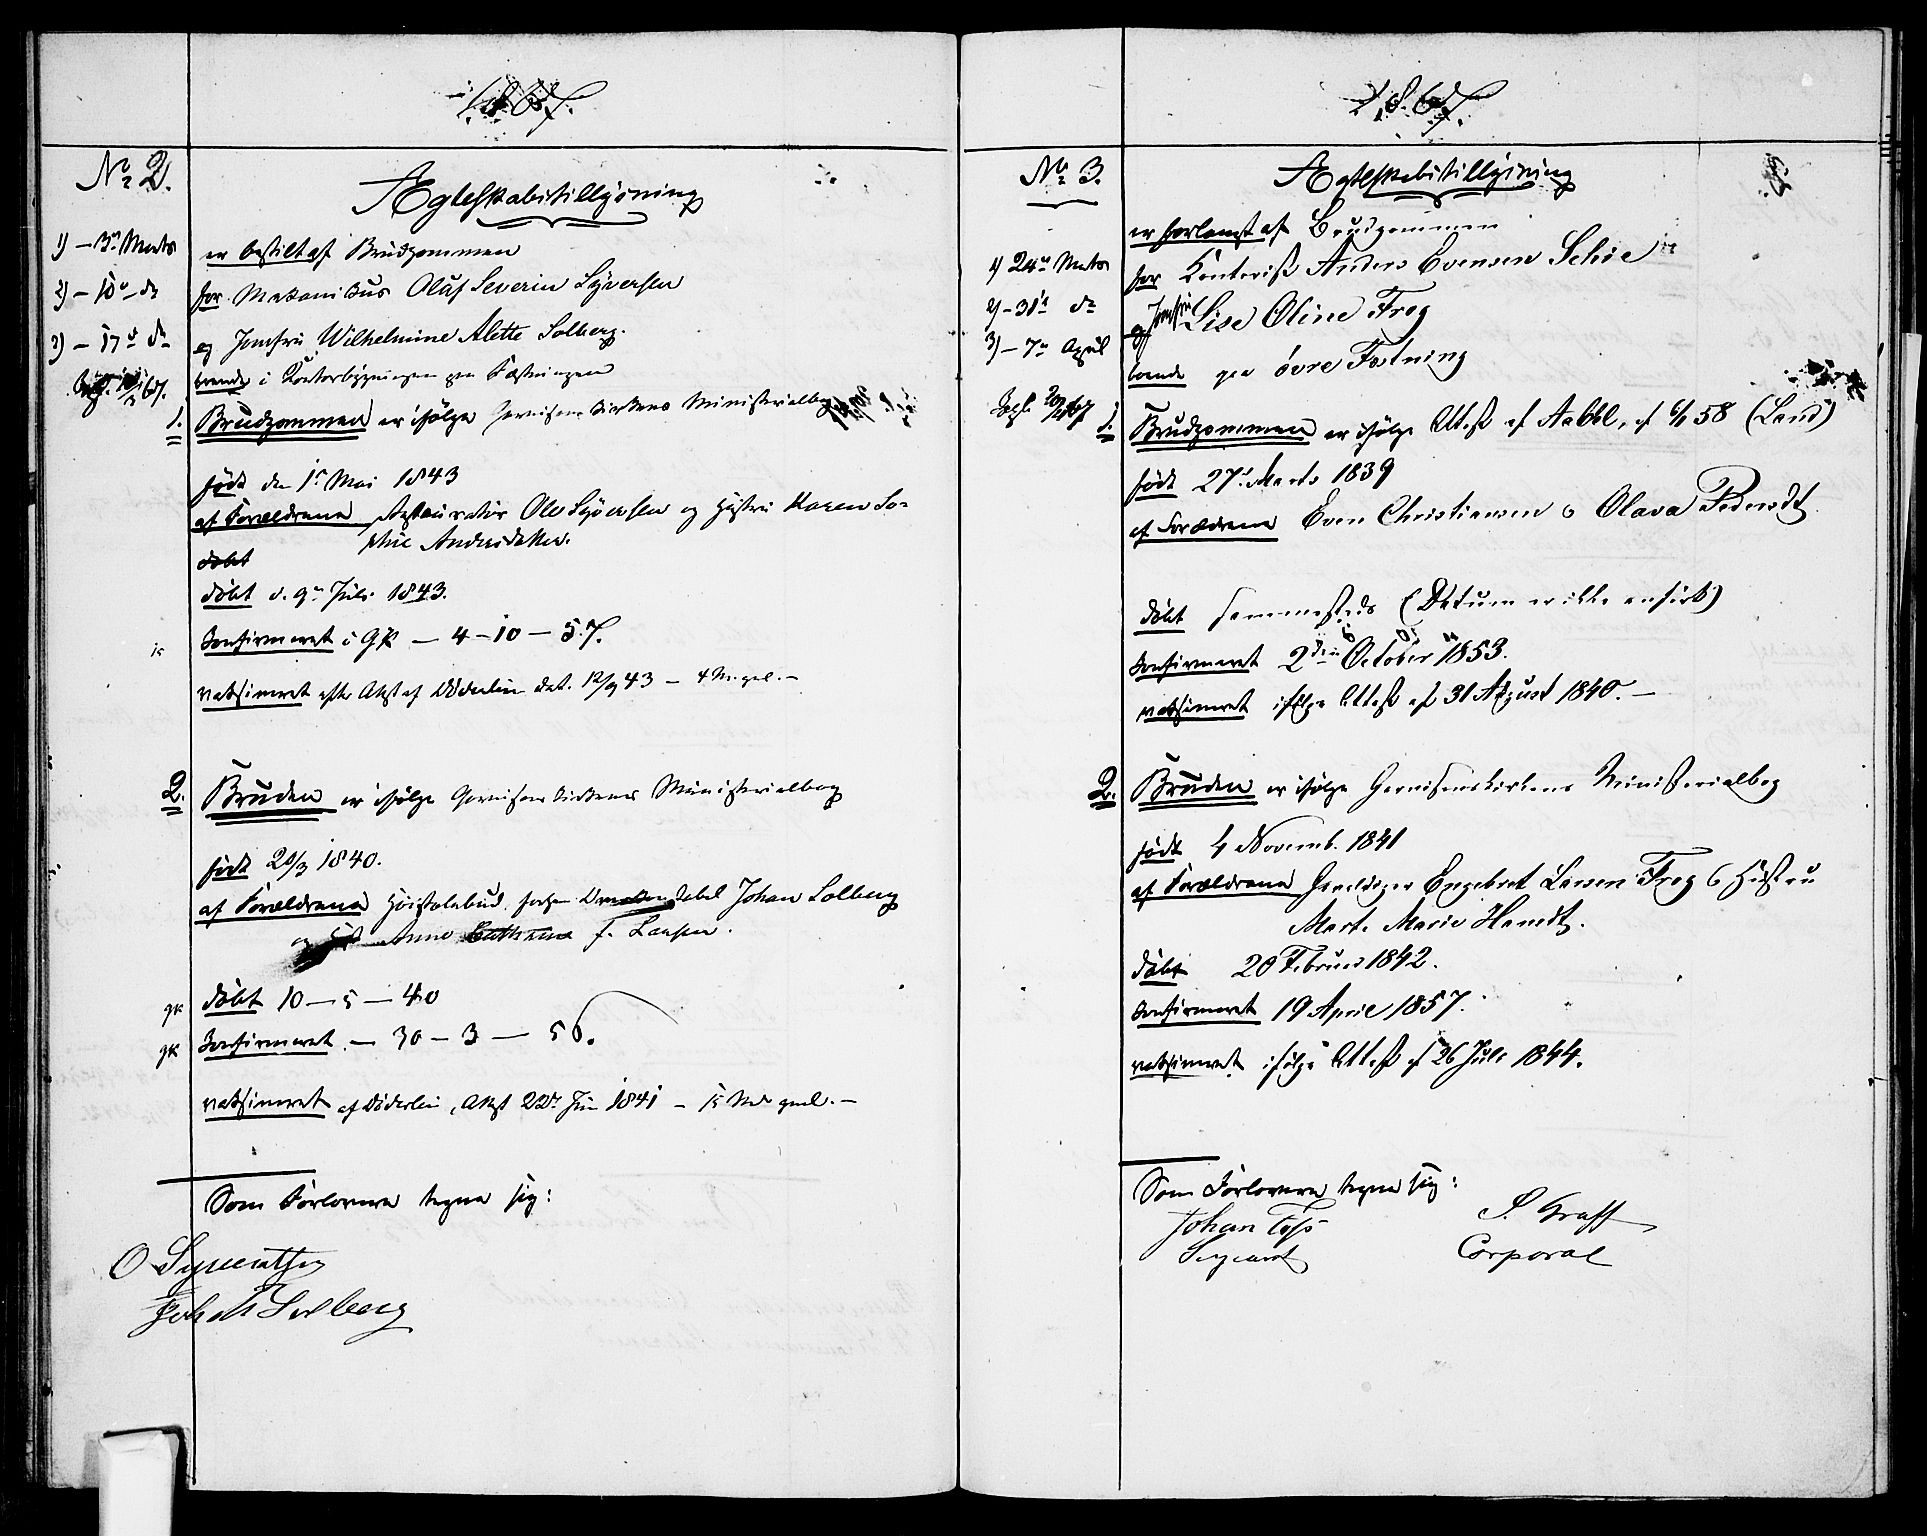 1867.
No 2.
Ægteskabstillysning
1) – 3die Marts
er bestilt af Brudgommen
2) – 10de do
for Mekanikus Oluf Severin Syversen
3) – 17de do
og Jomfru Wilhelmine Alette Solberg.
boende i Kontorbygningen paa Fæstningen
1.
Brudgommen er ifølge Garnisonskirkens Ministerialbog
født den 1ste Mai 1843
af Forældrene Restauratør Ole Syversen og Hustru Karen So-
phie Andersdatter.
døbt
døbt d. 9de Juli 1843.
konfirmeret i GK – 4 – 10 – 57.
vaksineret efter Attest af Döderlein dat. 12/9 43 – 4 M. gml. –
2.
Bruden er ifølge Garnisonskirkens Ministerialbog
født 20/3 1840.
af Forældrene Johan Solberg
og Anne Cathrine f. Larsen.
gk
døbt 10 – 5 – 40
gk
konfirmeret – 30 – 3 – 56.
vaksineret af Döderlein, Attest 22de Juni 1841 – 15 Mdr gml. –
Som Forlovere tegne sig:
O Syversen
Joh Solberg
1867.
No 3.
Ægteskabstillysning
er forlangt af Brudgommen
1) 24de Marts
for Kontorist Anders Evensen Schie
2) – 31te do
og Jomfru Lise Oline Frog
3) – 7de April
boende paa øvre Fæstning
1.
Brudgommen er ifølge Attest af Aabel, af 6/1 58 (Land)
født 27de Marts 1839
af Forældrene Even Christiansen & Olava Pedersdt
døbt sammesteds (Datum er ikke anført)
konfirmeret 2den October 1853.
vaksineret ifølge Attest af 31 August 1840. –
2.
Bruden er ifølge Garnisonskirkens Ministerialbog
født 4 Novemb. 1841
af Forældrene Gevaldiger Engebret Larsen Frog & Hustru
Marte Marie Hansdt.
døbt 20 Februar 1842.
konfirmeret 19 April 1857.
vaksineret ifølge Attest af 26 Juli 1844.
Som Forlovere tegne sig:
Johan Foss
Sergeant
P. Graff
Corporal